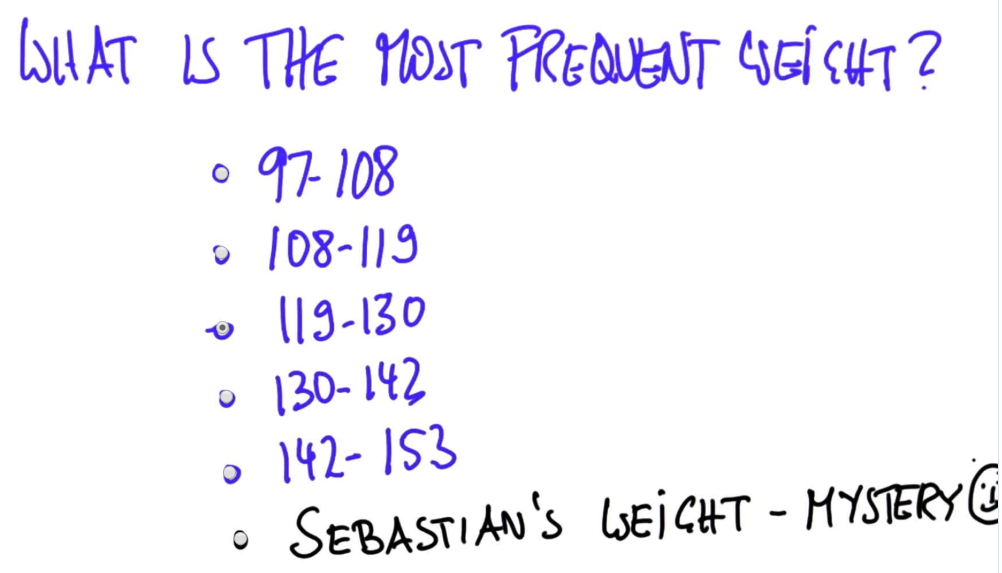 WHAT IS THE MOST FREQUENT WEIGHT?
97-108
108-119
119-130
130-142
142-153
SEBASTIAN'S WEIGHT - MYSTERY